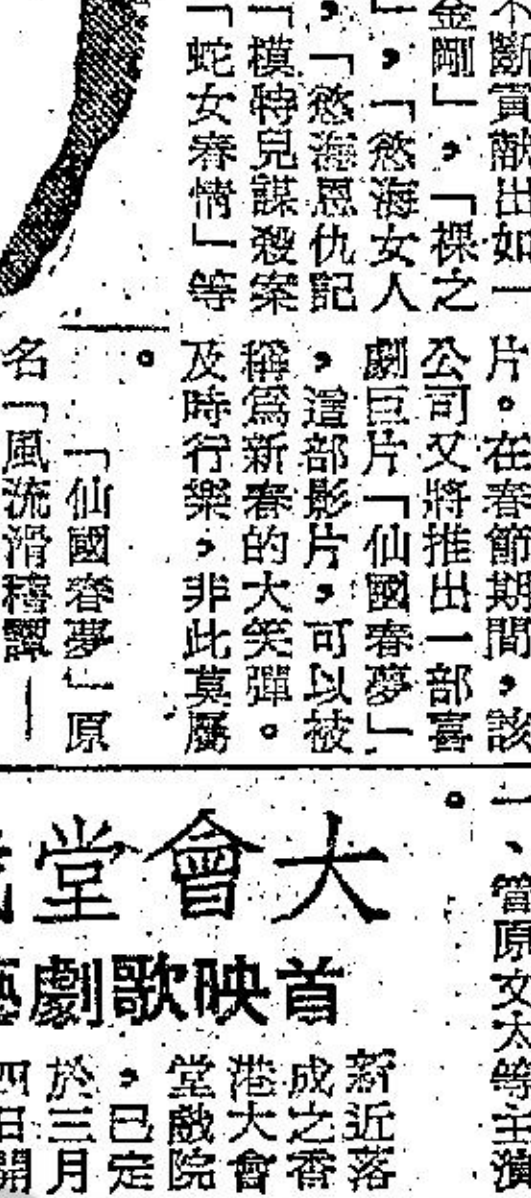 不斷貢獻出如一
金剛」,「裸之
」,「慾海女人
,「慾海恩仇記
「模特兒謀殺案
「蛇女春情」等
片。在春節期間,該
公司又將推出一部喜
劇巨片「仙國春夢」
,這部影片,可以被
稱為新春的大笑彈。
及時行樂,非此莫屬
。
「仙國春夢」原
名「風流滑稽譚—
一、菅原文太等主演
。
大會堂
首映歌劇
新近落
成之香
港大會
堂戲院
,已定
於三月
四日開